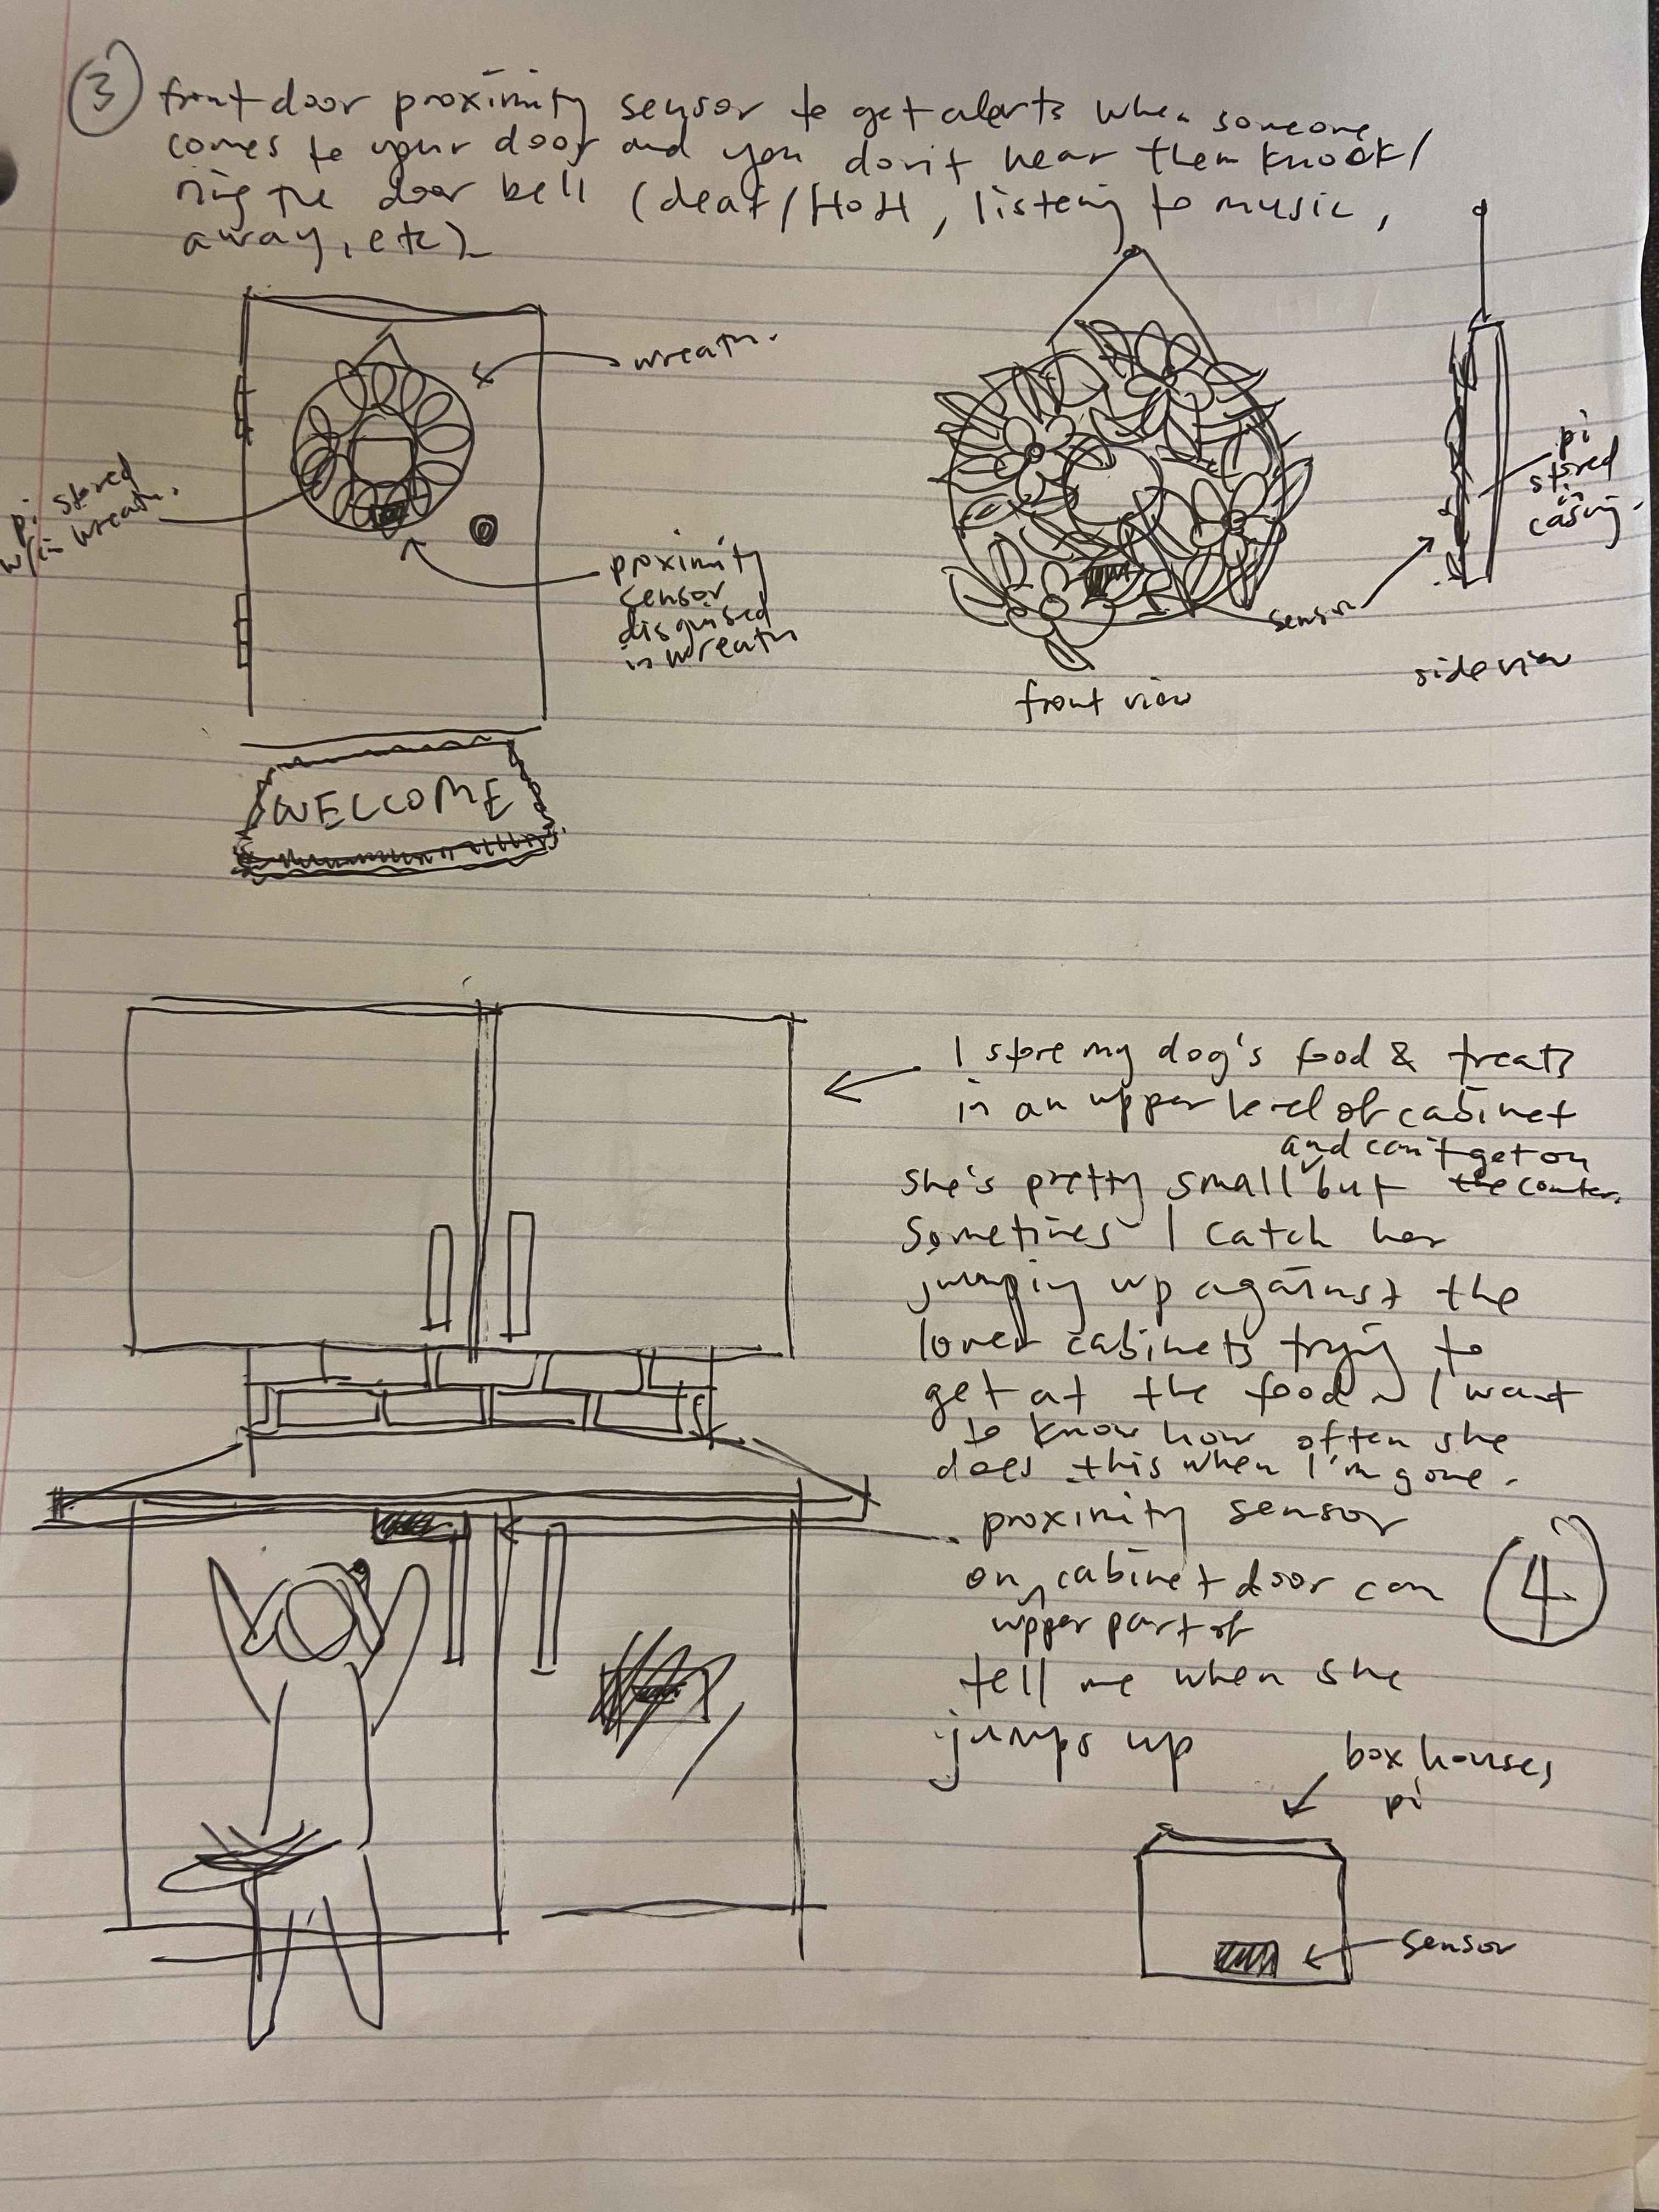 3
front door proximity sensor to get alerts when someone
comes to your door and you don't hear them knock/
ring the door bell (deaf/HoH, listening to music,
away, etc)
wreath.
pi stored
w/in wreath.
proximity
sensor
disguised
in wreath
WELCOME
front view
sensor
pi
stored
in
casing.
side view
I store my dog's food & treats
in an upper level of cabinet
and can't get on
she's pretty small but the counter.
Sometimes I catch her
jumping up against the
lower cabinets trying to
get at the food ~ I want
to know how often she
does this when I'm gone.
proximity sensor
on cabinet door can
upper part of
tell me when she
jumps up
4
box houses
pi
sensor